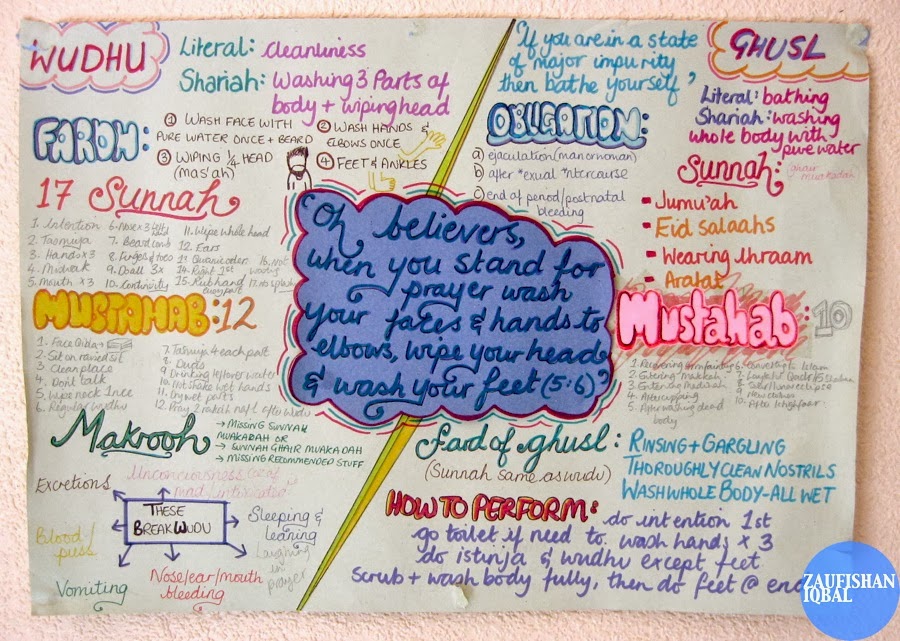 WUDHU
Literal: cleanliness
Shariah: Washing 3 Parts of
body + wiping head
FARDH:
① WASH FACE WITH
PURE WATER ONCE + BEARD
② WASH HANDS &
ELBOWS ONCE
③ WIPING ¼ HEAD
(mas'ah)
④ FEET & ANKLES
17 Sunnah
1. Intention
2. Tasmiya
3. Hands x3
4. Miswak
5. Mouth x3
6. Nose x3
7. Beard comb
8. Fingers & toes
9. Do all 3x
10. Continuity
11. Wipe whole head
12. Ears
13. Quranic order
14. Right 1st
15. Rub hand
16. Not
MUSTAHAB: 12
1. Face Qibla
2. Sit on raised spot
3. Clean place
4. Don't talk
5. Wipe neck 1nce
6. Regular wudhu
7. Tasmiya 4 each part
8. Du'as
9. Drinking leftover water
10. Not shake wet hands
12. Pray 2 rakah nafl after wudu
Makrooh
→ MISSING SUNNAH
MUAKADAH OR
→ SUNNAH GHAIR MUAKADAH
→ MISSING RECOMMENDED STUFF
THESE
BREAK WUDU
Excretions
Blood/
puss
Vomiting
Nose/ear/mouth
bleeding
Laughing in
prayer
Sleeping &
leaning
'Oh believers,
when you stand for
prayer wash
your faces & hands to
elbows, wipe your head
& wash your feet (5:6)'
GHUSL
'If you are in a state
of major impurity
then bathe yourself'
Literal: bathing
Shariah: washing
whole body with
pure water
OBLIGATION:
a) ejaculation (man or woman)
b) after *exual intercourse
c) end of period/postnatal
bleeding
Sunnah:
ghair
muakadah
- Jumu'ah
- Eid salaahs
- Wearing ihraam
- Arafat
Mustahab: 10
1. Recovering from fainting
2. Entering makkah
3. Entering madinah
4. After cupping
5. After washing dead
body
Fard of ghusl:
(Sunnah same as wudu)
RINSING + GARGLING
THOROUGHLY CLEAN NOSTRILS
WASH WHOLE BODY - ALL WET
HOW TO PERFORM:
do intention 1st
go toilet if need to. wash hands x 3
do istinja & wudhu except feet
Scrub + wash body fully, then do feet @ end
ZAUFISHAN
IQBAL